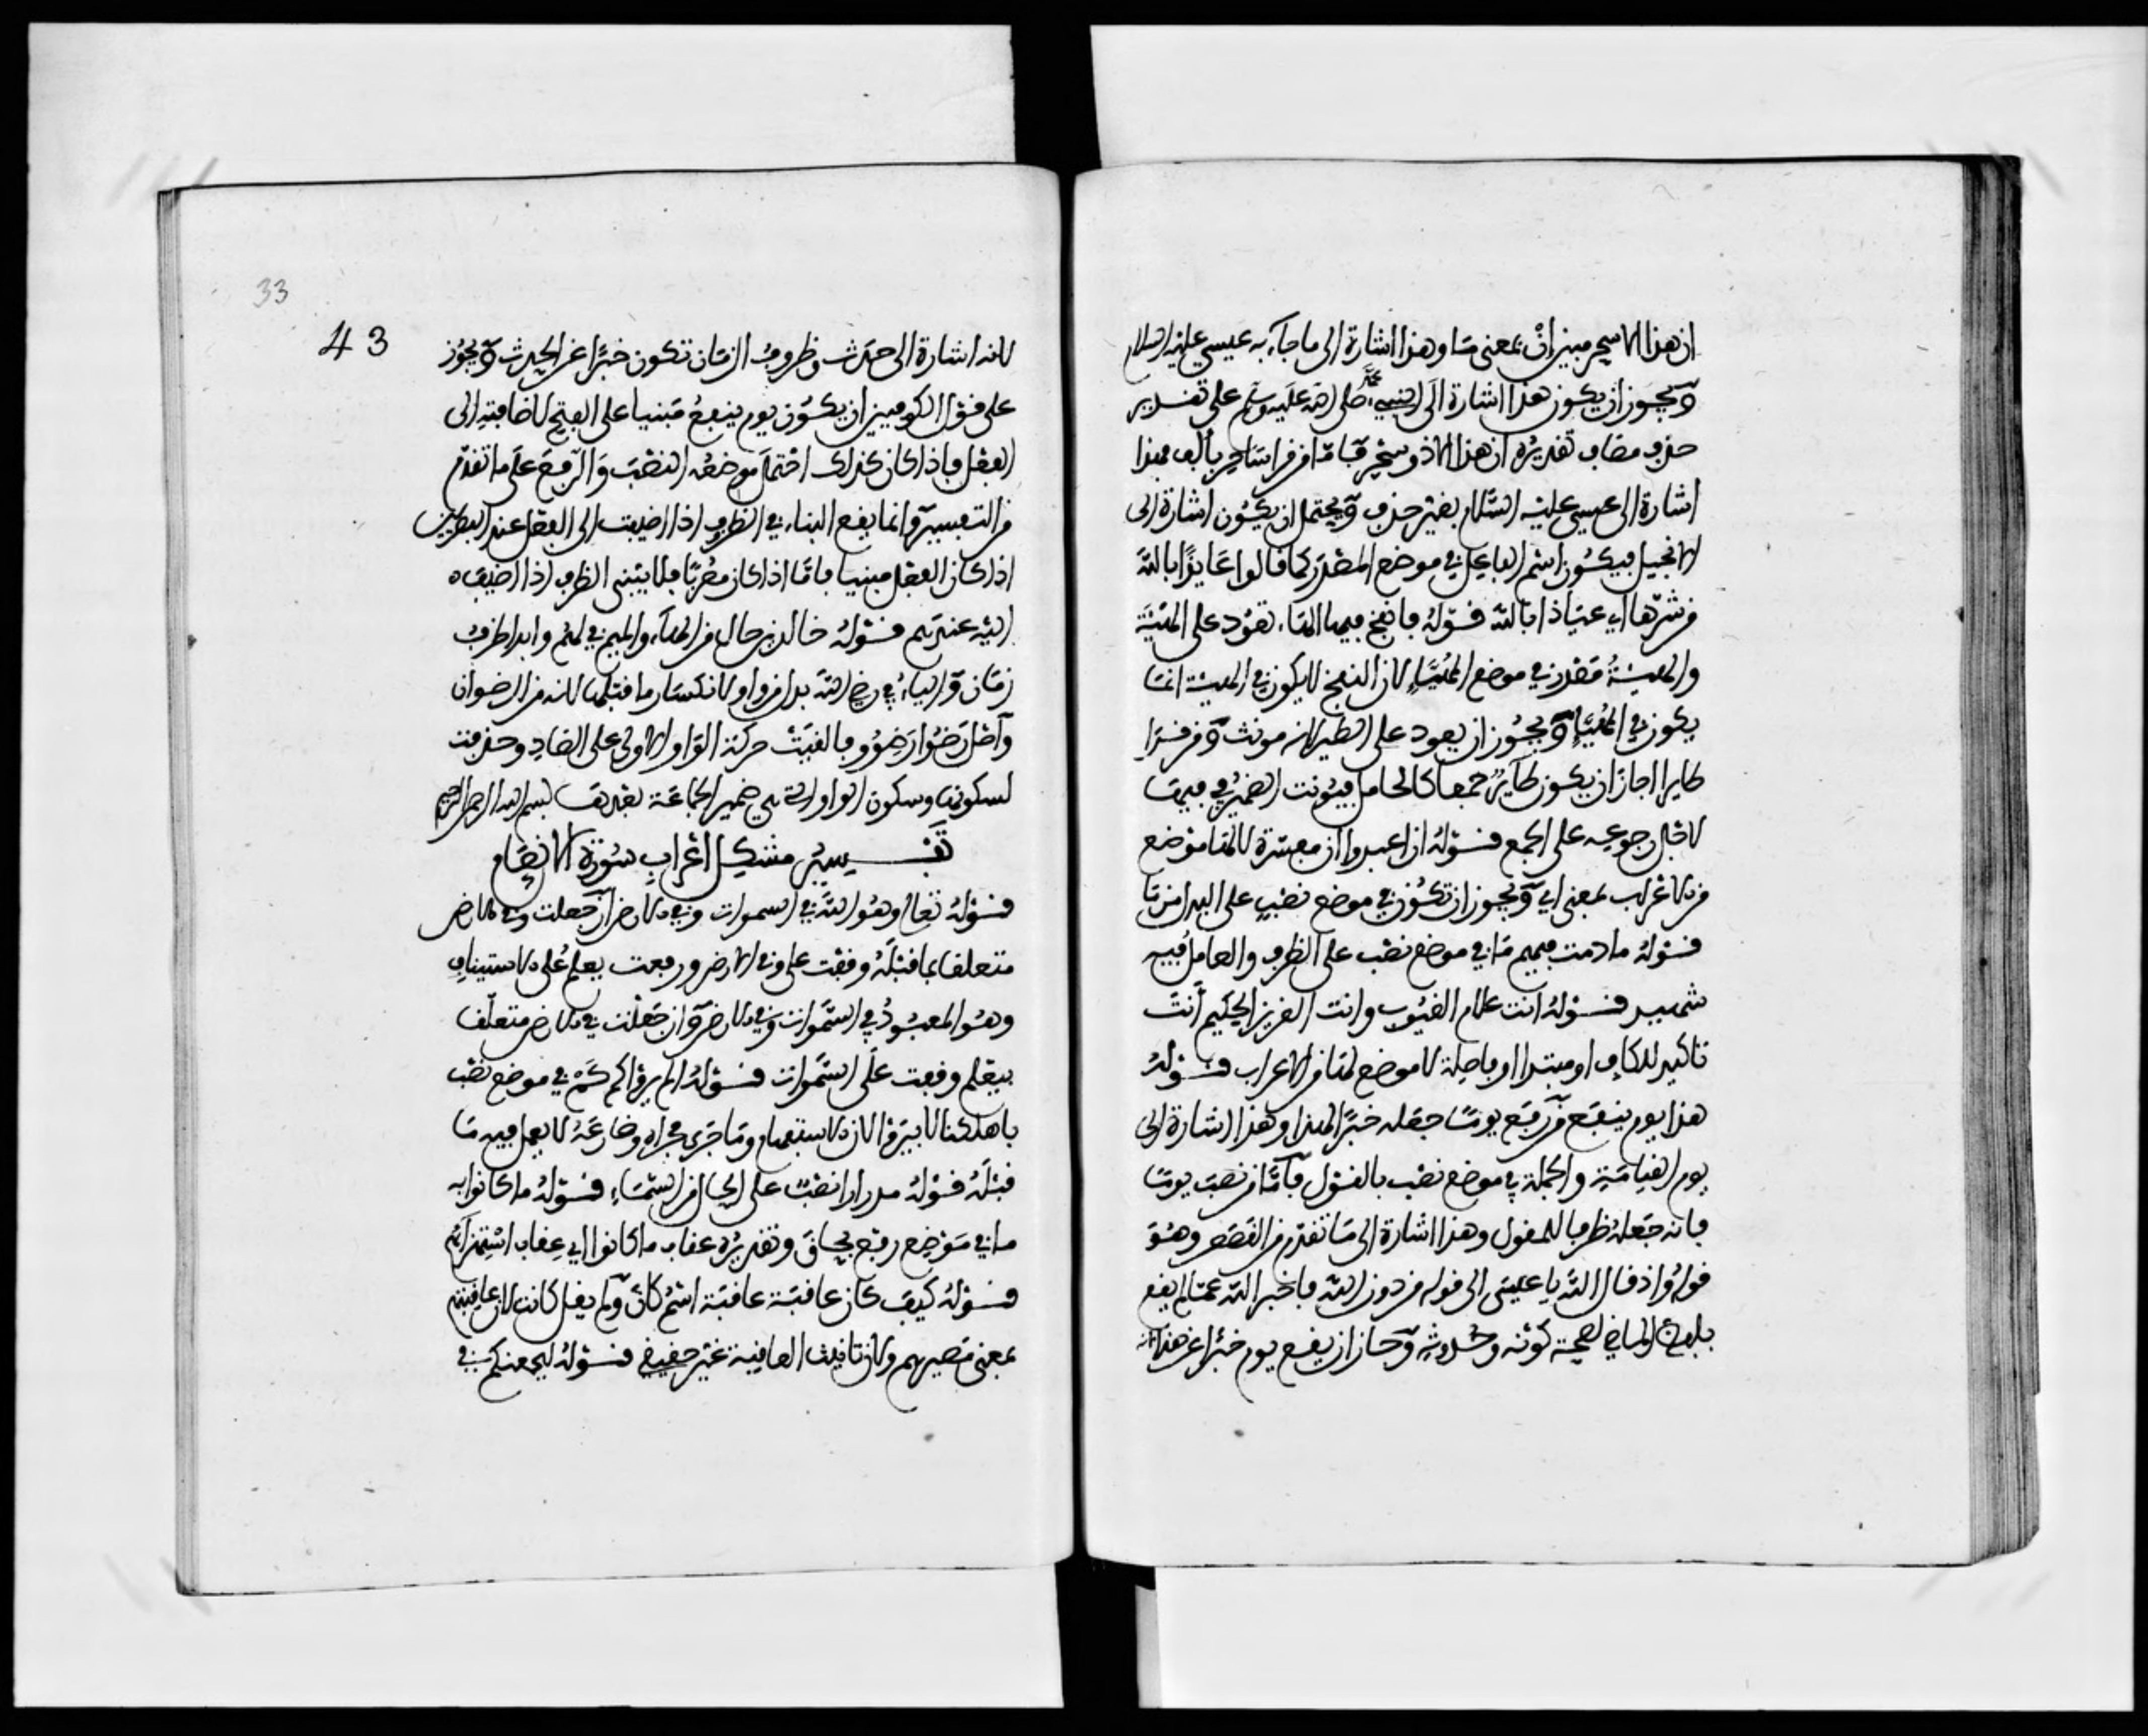 ان هذا الا سحر مبين إن بمعنى ما وهذا اشارة الى ما جاء به عيسى عليه السلام
ويجوز أن يكون هذا اشارة الى النبي محمد صلى الله عليه وسلم على تقدير
حذف مضاف تقديره ان هذا الا ذو سحر فأما من قرأ ساحر بألف فهذا
اشارة الى عيسى عليه السلام بغير حذف ويحتمل ان يكون اشارة الى
الانجيل فيكون اسم الفاعل في موضع المصدر كما قالوا عايذا بالله
من شرها اي عياذا بالله قوله فانفخ فيها الهاء تعود على الهيئة
والهيئة مصدر في موضع المهيأ لان النفخ لا يكون في الهيئة انما
يكون في المهيأ ويجوز ان يعود على الطير لانه مونث ومن قرأ
طايرا اجاز ان يكون طاير جمعا كالحامل فيونث الضمير في فيها
لانه رجوعه على الجمع قوله ان اعبدوا ان مفسرة لا لها موضع
من الاعراب بمعنى اي ويجوز ان تكون في موضع نصب على البدل من ما
قوله ما دمت فيهم ما في موضع نصب على الظرف والعامل فيه
شهيد قوله انت علام الغيوب وانت العزيز الحكيم أنت
تاكيد للكاف او مبتدا او فاصلة لا موضع لها من الاعراب قوله
هذا يوم ينفع من رفع يوما جعله خبرا لهذا وهذا اشارة الى
يوم القيامة والجملة في موضع نصب بالقول فأما من نصب يوما
فانه جعله ظرفا للقول وهذا اشارة الى ما تقدم من القصص وهو
قوله واذ قال الله يا عيسى الى قوله من دون الله فاخبر الله عما لم يقع
بلفظ الماضي لصحة كونه وحدوثه وجاز ان يقع يوم خبرا عن هذا
33
43
لانه اشارة الى حدث وظروف الزمان تكون خبرا عن الحدث ويجوز
على قول الكوفيين ان يكون يوم ينفع مبنيا على الفتح لاضافته الى
الفعل فاذا كان كذلك احتمل موضعه النصب والرفع على ما تقدم
من التفسير وانما يقع البناء في الظرف اذا اضيف الى الفعل عند البصريين
اذا كان الفعل مبنيا فاما اذا كان معربا فلا يبنى الظرف اذا اضيف
اليه عندهم قوله خالدين حال من الهاء والميم في لهم وابدا ظرف
زمان والياء في رضي الله بدل من واو لانكسار ما قبلها لانه من الرضوان
وأصل رضوا رضووا فالقيت حركة الواو الاولى على الضاد وحذفت
لسكونها وسكون الواو التي هي ضمير الجماعة بعدها بسم الله الرحمن الرحيم
تفسير مشكل اعراب سورة الانعام
قوله تعالى وهو الله في السموات وفي الارض ان جعلت وفي الارض
متعلقا بما قبله وقفت على وفي الارض ورفعت يعلم على الاستيناف
وهو المعبود في السموات وفي الارض وان جعلت في الارض متعلقا
بيعلم وقفت على السموات قوله الم يروا كم كم في موضع نصب
باهلكنا لا بيروا لان الاستفهام وما جرى مجراه وضارعه لا يعمل فيه ما
قبله قوله مدرارا نصب على الحال من السماء قوله ما كانوا به
ما في موضع رفع بحاق وتقديره عقاب ما كانوا اي عقاب استهزائهم
قوله كيف كان عاقبة عاقبة اسم كان ولم يقل كانت لان عاقبتهم
بمعنى مصيرهم ولان تانيث العاقبة غير حقيقي قوله ليجمعنكم في